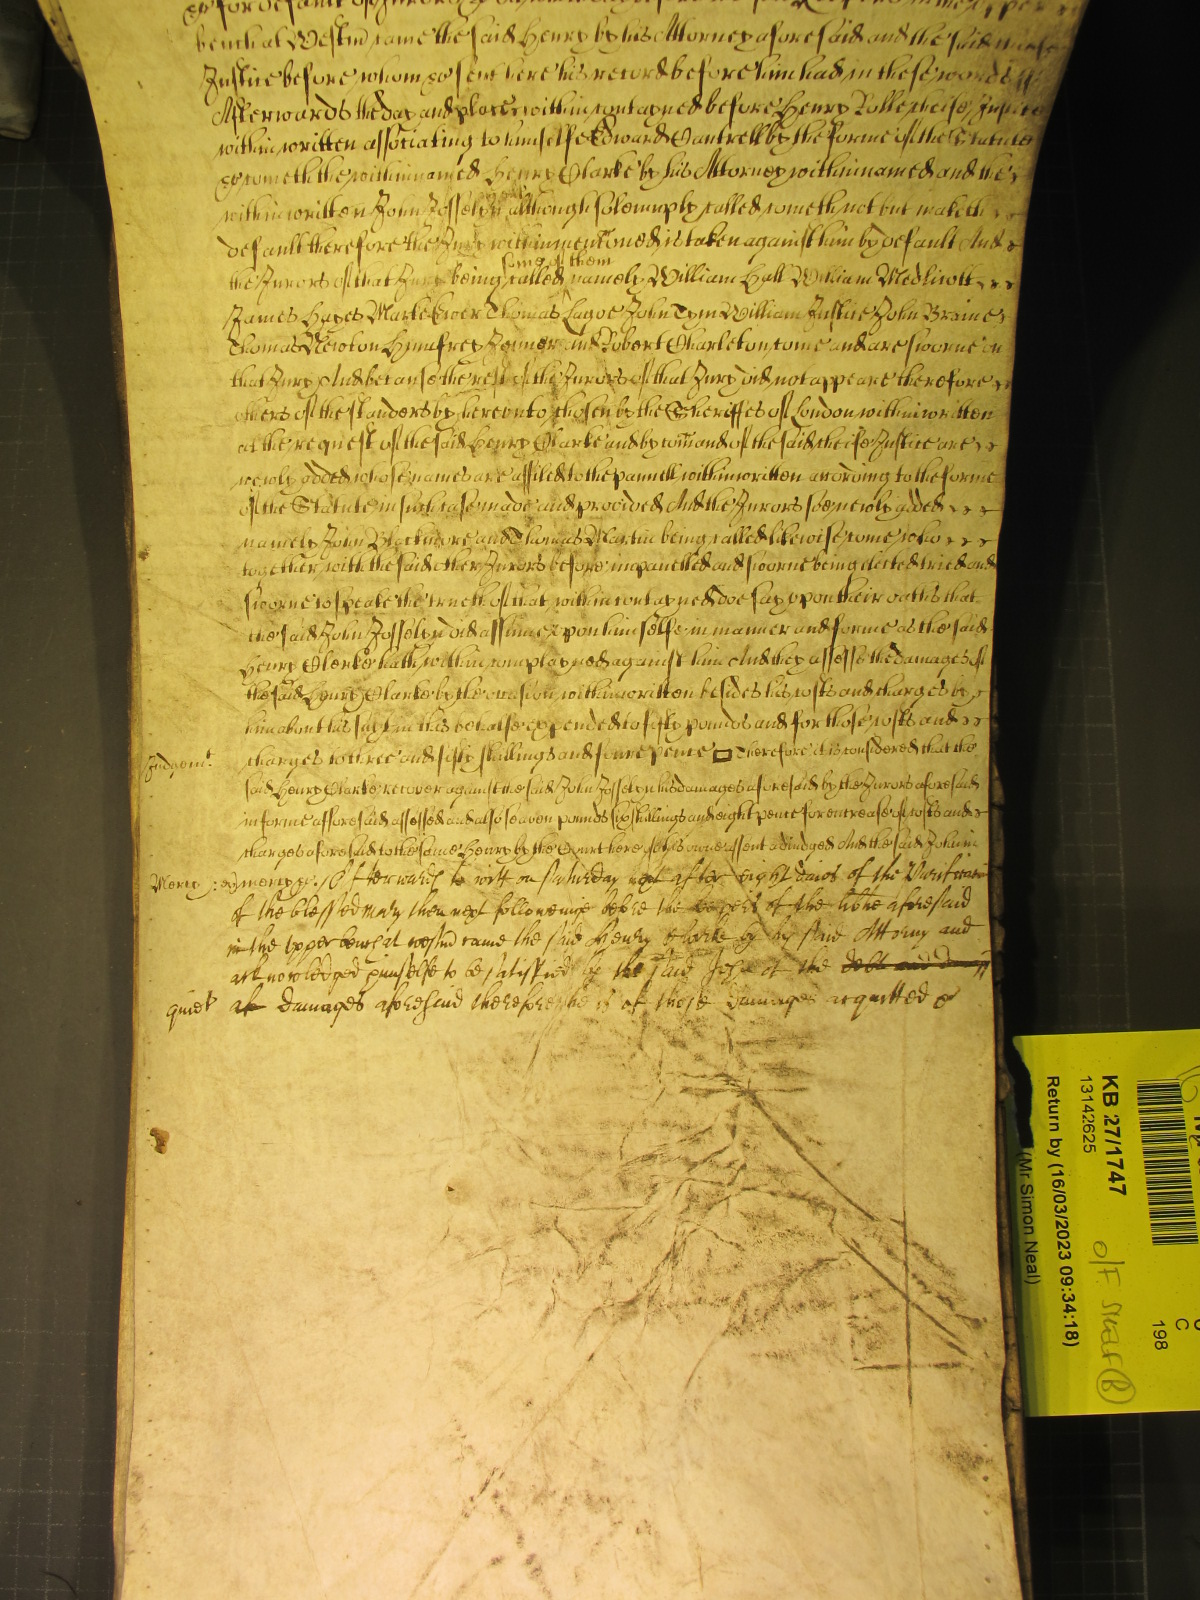 bench at Westm came the said Henry by his Attorney aforesaid and the said
Justice before whom &c sent here his record before him had in these words ss
Afterwards the day and place within contayned before Henry Rolle cheife Justice
within written associating to himselfe Edward Cantrell by the forme of the Statute
&c cometh the within named Henry Clarke by his Attorney within named and the
within written John Josselyn although solemnply called cometh not but maketh
default therefore the Jury within mentioned is taken against him by default And
some of them
the Jurors of that Jury being called namely William Hall William Medlicott
James Hayes Marke Thomas Lagoe John Tym William Justice John Braine
Thomas Newton Humfrey and Robert Charleton come and are sworne on
that Jury And because the rest of the Jurors of that Jury did not appeare therefore
others of the standers by hereunto chosen by the Sheriffes of London within written
at the request of the said Henry Clarke and by comand of the said cheife Justice are
newly added whose names are affiled to the pannell within written according to the forme
of the Statute in such case made and provided And the Jurors soe newly added
namely John Blackmore and Thomas Martin being called likewise come who
together with the said other Jurors before impanelled and sworne being elected tried and
sworne to speake the trueth of that within contayned doe say upon their oathes that
the said John Josselyn did assume upon himselfe in manner and forme as the said
Henry Clarke hath within complayned against him And they assesse the damages of
the said Henry Clarke by the occasion within written besides his costs and charges by
him about his suyt in this behalfe expended to fifty pounds and for those costs and
Judgemt. charges to three and fifty shillings and foure pence Therefore it is considered that the
said Henry Clarke recover against the said John Josselyn his damages aforesaid by the Jurors aforesaid
in forme afforesaid assessed and also seaven pounds six shillings and eight pence for encrease of costs and
charges aforesaid to the same Henry by the Court here of his owne assent adiudged And the said John in
Mercy : mercy &c. Afterwards to witt on Saturday next after eight daies of the Purification
of the blessed mary then next followeinge before the keepers of the libtie aforesaid
in the upper bench at westm came the said Henry Clarke by his said Attorny and
acknowledged himselfe to be satisfied by the said John of the debt and
quiet damages aforesaid therefore he is of those damages acquitted &c
KB 27/1747
13142625
Return by (16/03/2023 09:34:18)
(Mr Simon Neal)
C
198